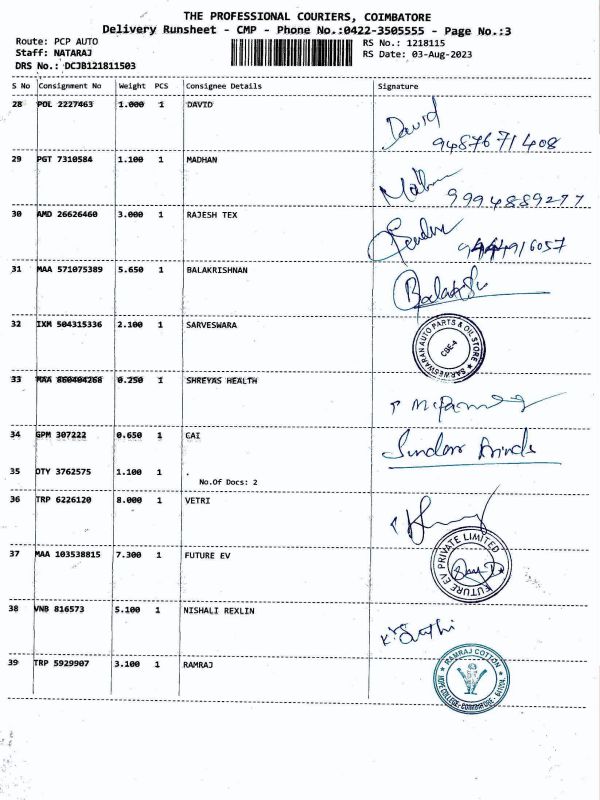 THE PROFESSIONAL COURIERS, COIMBATORE
Delivery Runsheet - CMP - Phone No.:0422-3505555 - Page No.:3
Route: PCP AUTO
Staff: NATARAJ
DRS No.: DCJB121811503
RS No.: 1218115
RS Date: 03-Aug-2023
S No Consignment No Weight PCS Consignee Details Signature
28 POL 2227463 1.000 1 DAVID
David
9487671408
29 PGT 7310584 1.100 1 MADHAN
9994889277
30 AMD 26626460 3.000 1 RAJESH TEX
31 MAA 571075389 5.650 1 BALAKRISHNAN
32 IXM 504315336 2.100 1 SARVESWARA
SARWESWARAN AUTO PARTS & OIL STORE
CBE-4
33 MAA 860404268 0.250 1 SHREYAS HEALTH
34 GPM 307222 0.650 1 CAI
35 OTY 3762575 1.100 1 .
No.Of Docs: 2
36 TRP 6226120 8.000 1 VETRI
37 MAA 103538815 7.300 1 FUTURE EV
FUTURE EV PRIVATE LIMITED
38 VNB 816573 5.100 1 NISHALI REXLIN
39 TRP 5929907 3.100 1 RAMRAJ
RAMRAJ COTTON
HOPE COLLEGE, COIMBATORE